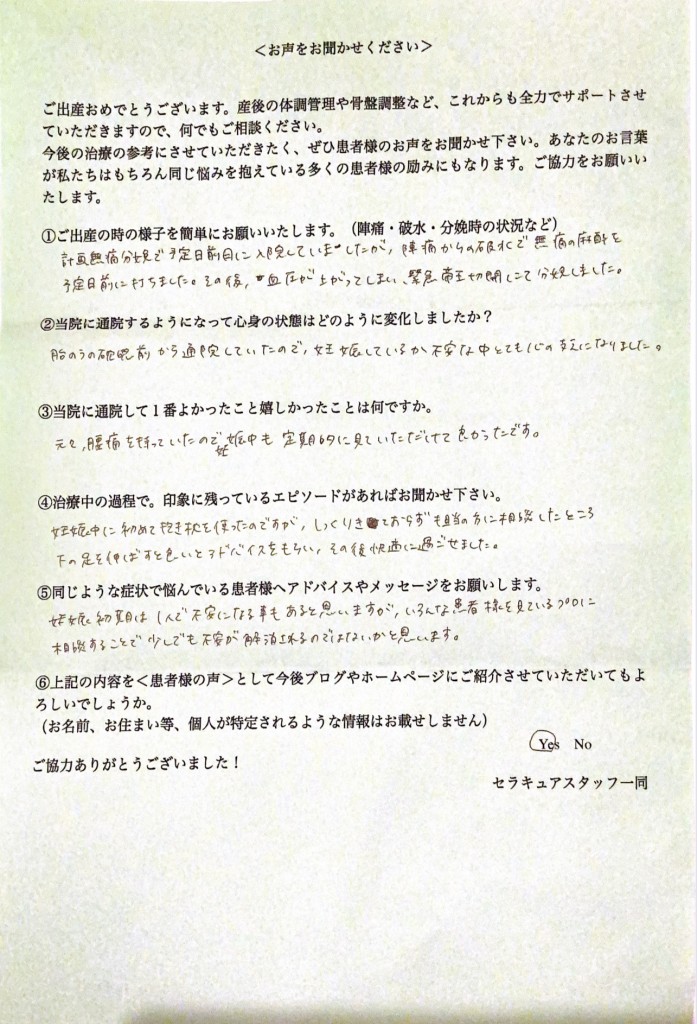 ＜お声をお聞かせください＞
ご出産おめでとうございます。産後の体調管理や骨盤調整など、これからも全力でサポートさせ
ていただきますので、何でもご相談ください。
今後の治療の参考にさせていただきたく、ぜひ患者様のお声をお聞かせ下さい。あなたのお言葉
が私たちはもちろん同じ悩みを抱えている多くの患者様の励みにもなります。ご協力をお願いい
たします。
①ご出産の時の様子を簡単にお願いいたします。（陣痛・破水・分娩時の状況など）
計画無痛分娩で予定日前日に入院していましたが、陣痛からの破水で無痛の麻酔を
予定日前に打ちました。その後、血圧が上がってしまい、緊急帝王切開にて分娩しました。
②当院に通院するようになって心身の状態はどのように変化しましたか？
胎のうの確認前から通院していたので、妊娠しているか不安な中とても心の支えになりました。
③当院に通院して１番よかったこと嬉しかったことは何ですか。
元々、腰痛を持っていたので妊娠中も定期的に見ていただけて良かったです。
④治療中の過程で。印象に残っているエピソードがあればお聞かせ下さい。
妊娠中に初めて抱き枕を使ったのですが、しっくりきておらず担当の方に相談したところ
下の足を伸ばすと良いとアドバイスをもらい、その後快適に過ごせました。
⑤同じような症状で悩んでいる患者様へアドバイスやメッセージをお願いします。
妊娠初期は1人で不安になる事もあると思いますが、いろんな患者様を見ているプロに
相談することで少しでも不安が解消されるのではないかと思います。
⑥上記の内容を＜患者様の声＞として今後ブログやホームページにご紹介させていただいてもよ
ろしいでしょうか。
（お名前、お住まい等、個人が特定されるような情報はお載せしません）
Yes No
ご協力ありがとうございました！
セラキュアスタッフ一同